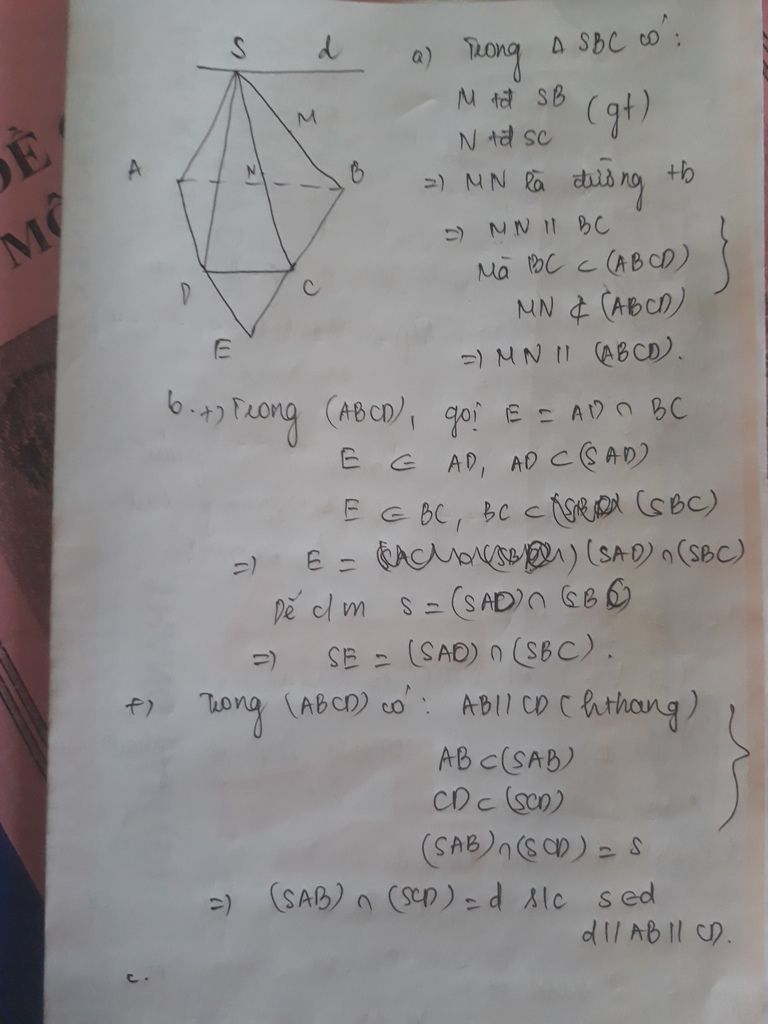 ĐỀ
MÔ
S d
M
A N B
D C
E
a) Trong Δ SBC có:
M tđ SB (gt)
N tđ SC
=) MN là đường tb
=) MN // BC
Mà BC ⊂ (ABCD)
MN ⊄ (ABCD)
=) MN // (ABCD).
b. +) Trong (ABCD), gọi E = AD ∩ BC
E ∈ AD, AD ⊂ (SAD)
E ∈ BC, BC ⊂ (SBC)
=) E = (SAD) ∩ (SBC)
Dễ c/m S = (SAD) ∩ (SBC)
=) SE = (SAD) ∩ (SBC).
+) Trong (ABCD) có: AB // CD (hthang)
AB ⊂ (SAB)
CD ⊂ (SCD)
(SAB) ∩ (SCD) = S
=) (SAB) ∩ (SCD) = d s/c S ∈ d
d // AB // CD.
c.